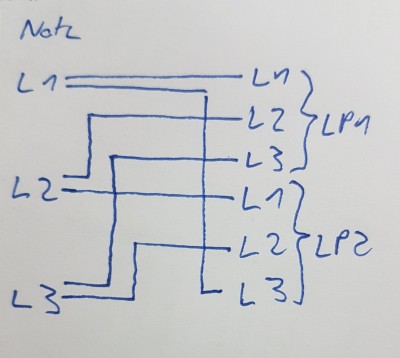 Netz
L1 L1
L2 LP1
L3
L2 L1
L2 LP2
L3 L3